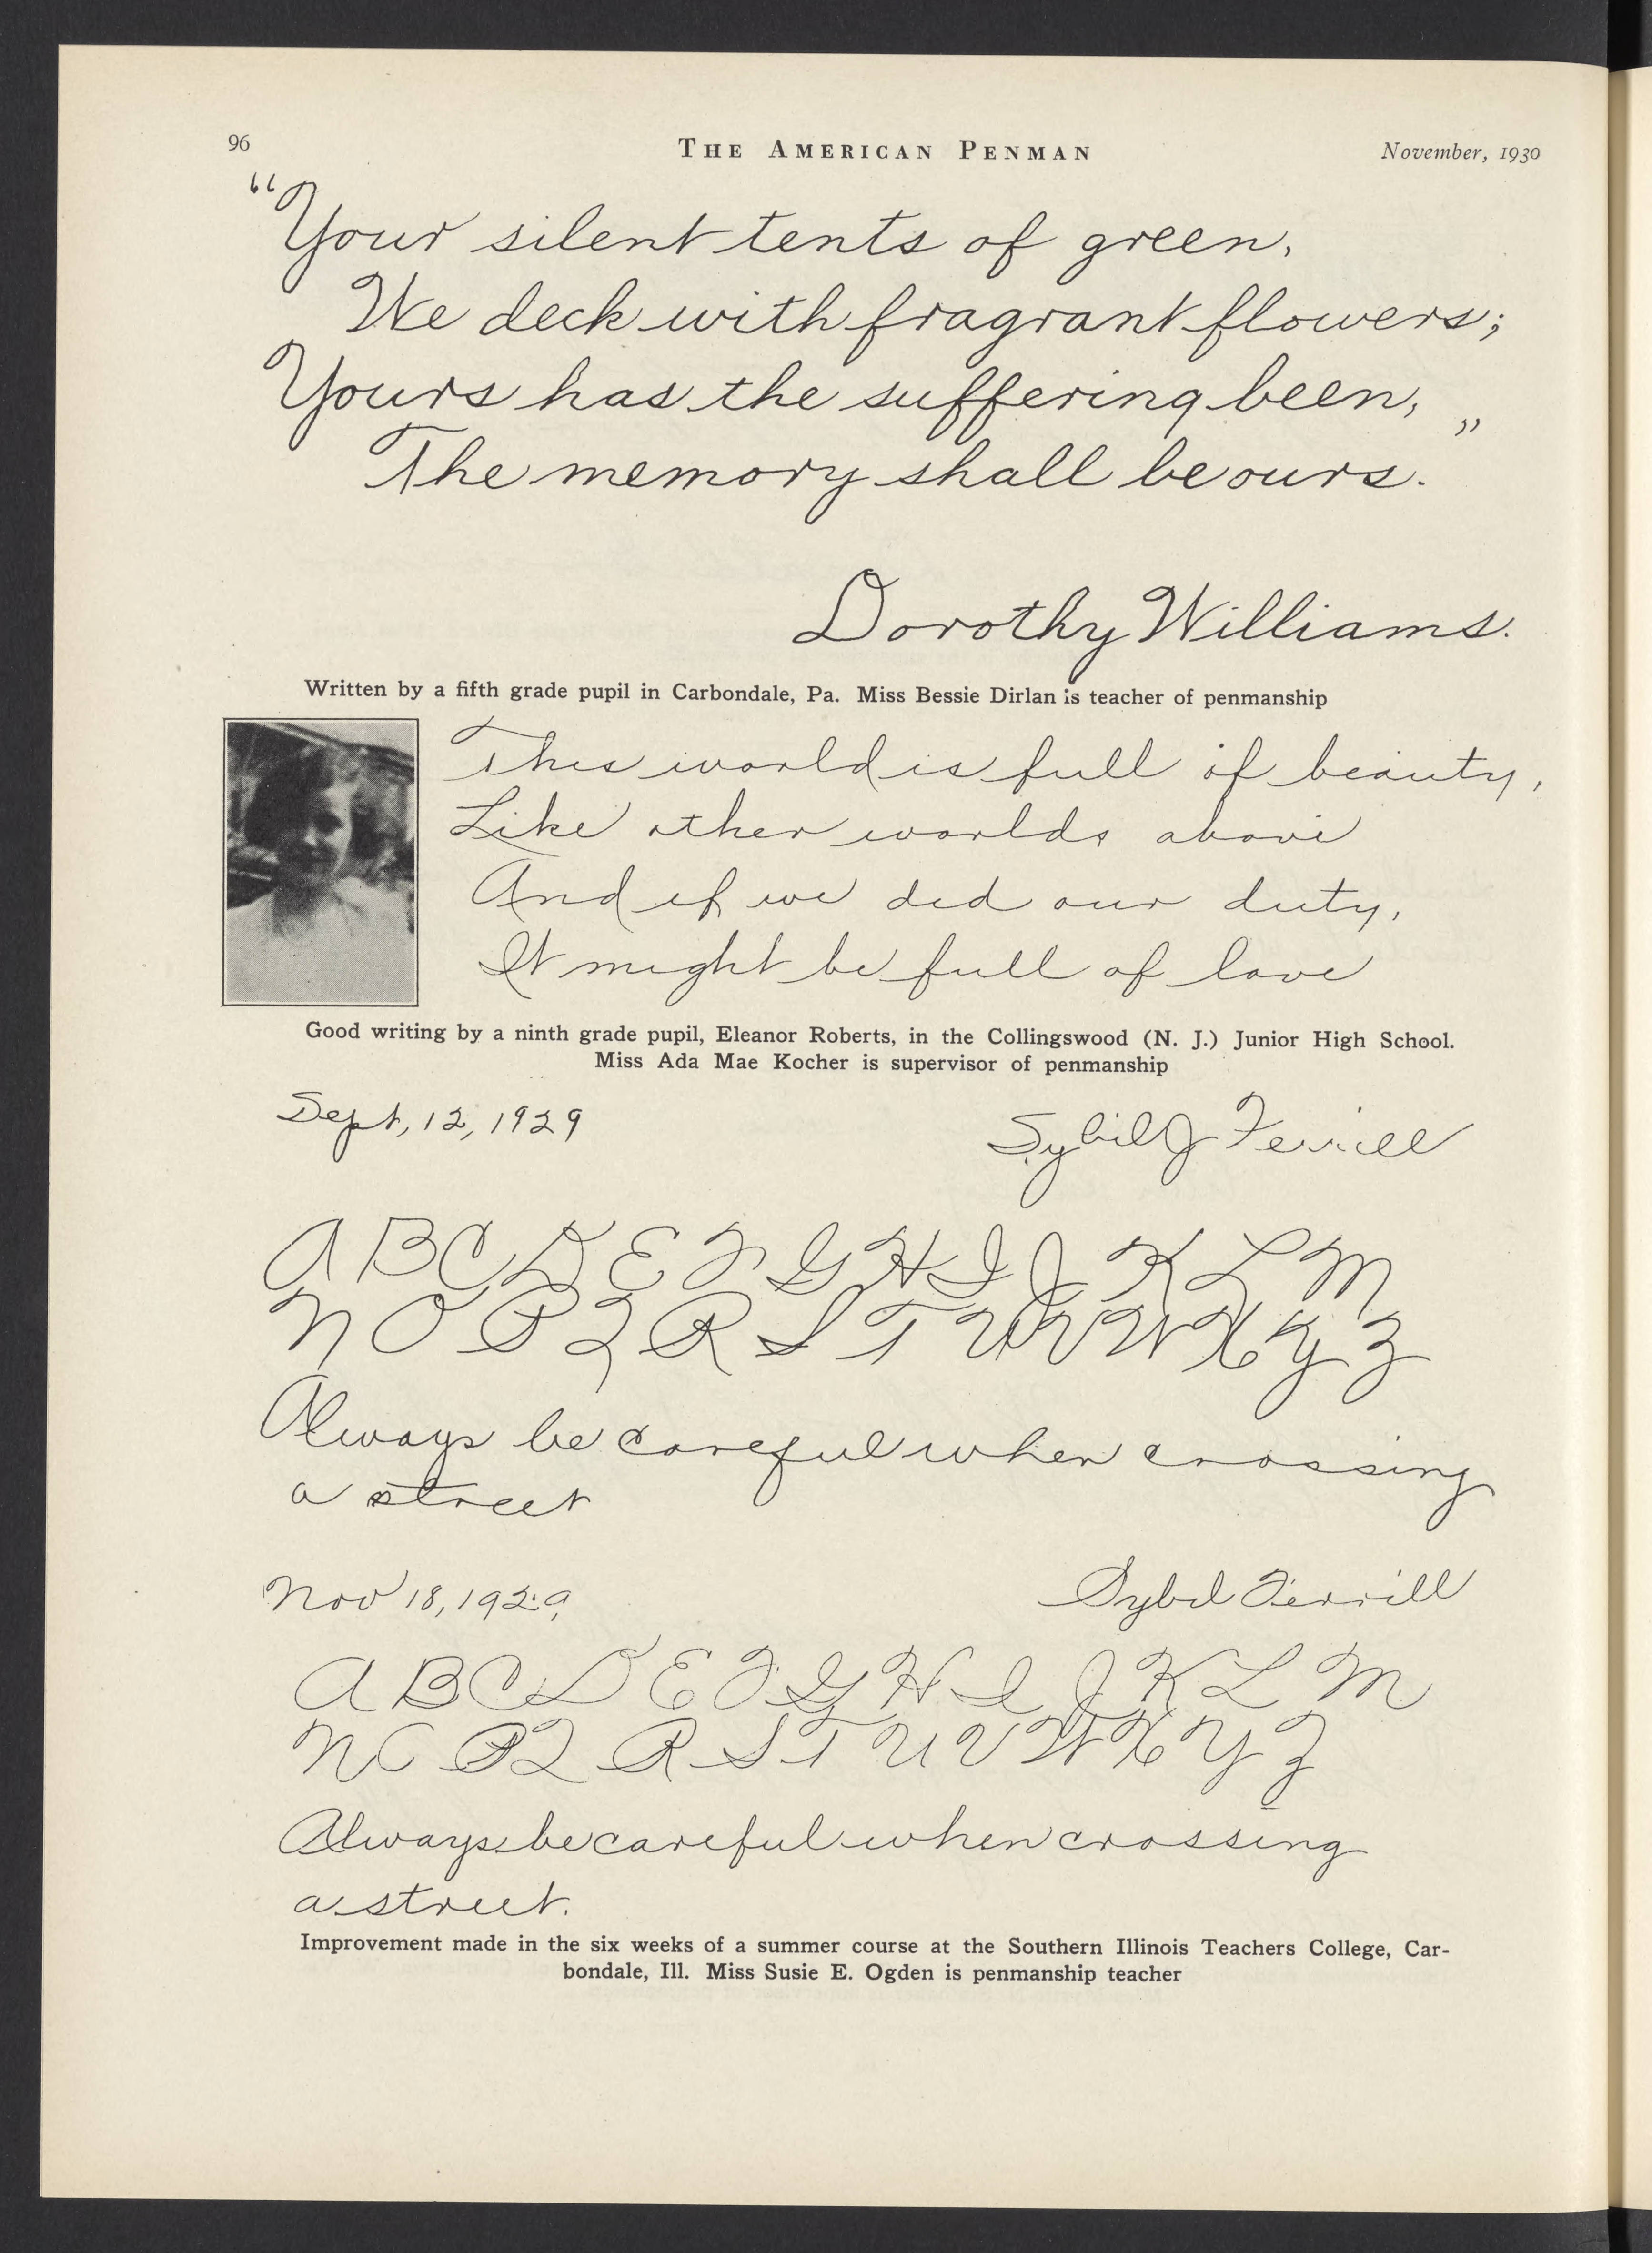 96 THE AMERICAN PENMAN November, 1930
“Your silent tents of green,
We deck with fragrant flowers;
Yours has the suffering been,
The memory shall be ours.”
Dorothy Williams.
Written by a fifth grade pupil in Carbondale, Pa. Miss Bessie Dirlan is teacher of penmanship
This world is full of beauty,
Like other worlds above
And if we did our duty,
It might be full of love
Good writing by a ninth grade pupil, Eleanor Roberts, in the Collingswood (N. J.) Junior High School.
Miss Ada Mae Kocher is supervisor of penmanship
Sept, 12, 1929 Sybil J Ferrill
A B C D E F G H I J K L M
N O P Q R S T U V W X Y Z
Always be careful when crossing
a street
Nov 18, 1929 Sybil Ferrill
A B C D E F G H I J K L M
N O P Q R S T U V W X Y Z
Always be careful when crossing
a street.
Improvement made in the six weeks of a summer course at the Southern Illinois Teachers College, Car-
bondale, Ill. Miss Susie E. Ogden is penmanship teacher